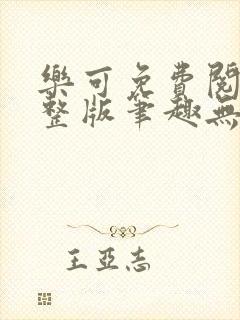 樂可免費閱
整版筆趣無
王亞志